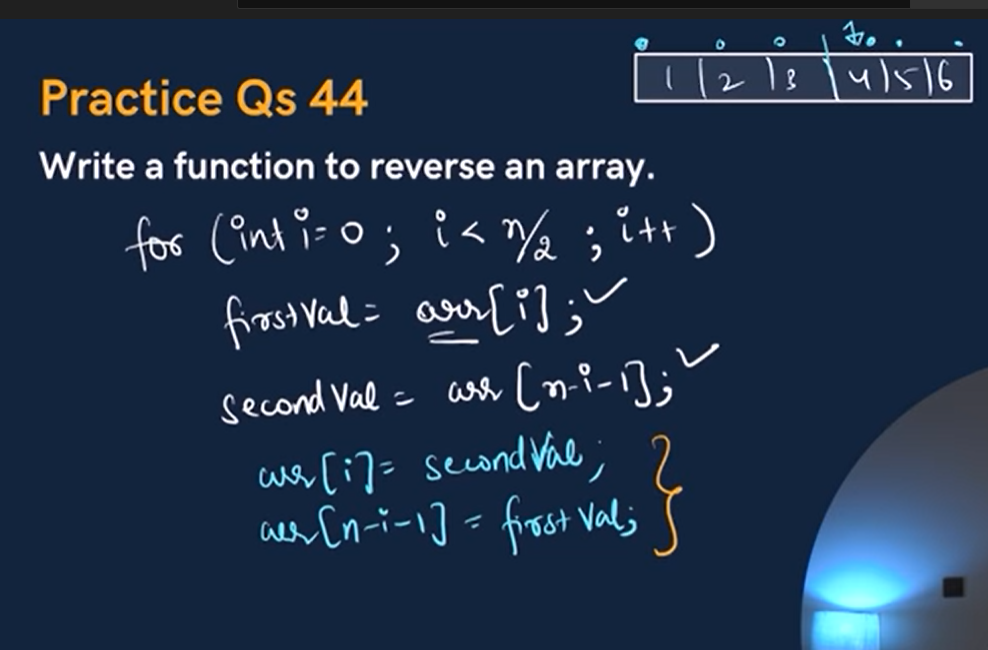 1 | 2 | 3 | 4 | 5 | 6
Practice Qs 44
Write a function to reverse an array.
for (int i=0 ; i < n/2 ; i++)
firstVal = arr[i];
secondVal = arr[n-i-1];
arr[i] = secondVal;
arr[n-i-1] = firstVal; }